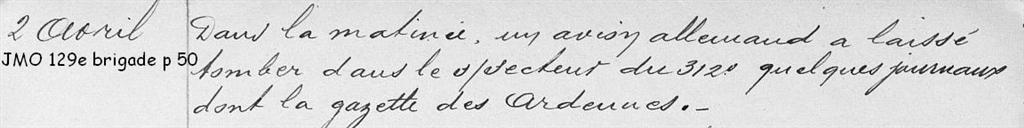 2 Avril Dans la matinée, un avion allemand a laissé
JMO 129e brigade p 50
tomber dans le s/secteur du 312e quelques journaux
dont la gazette des Ardennes. _